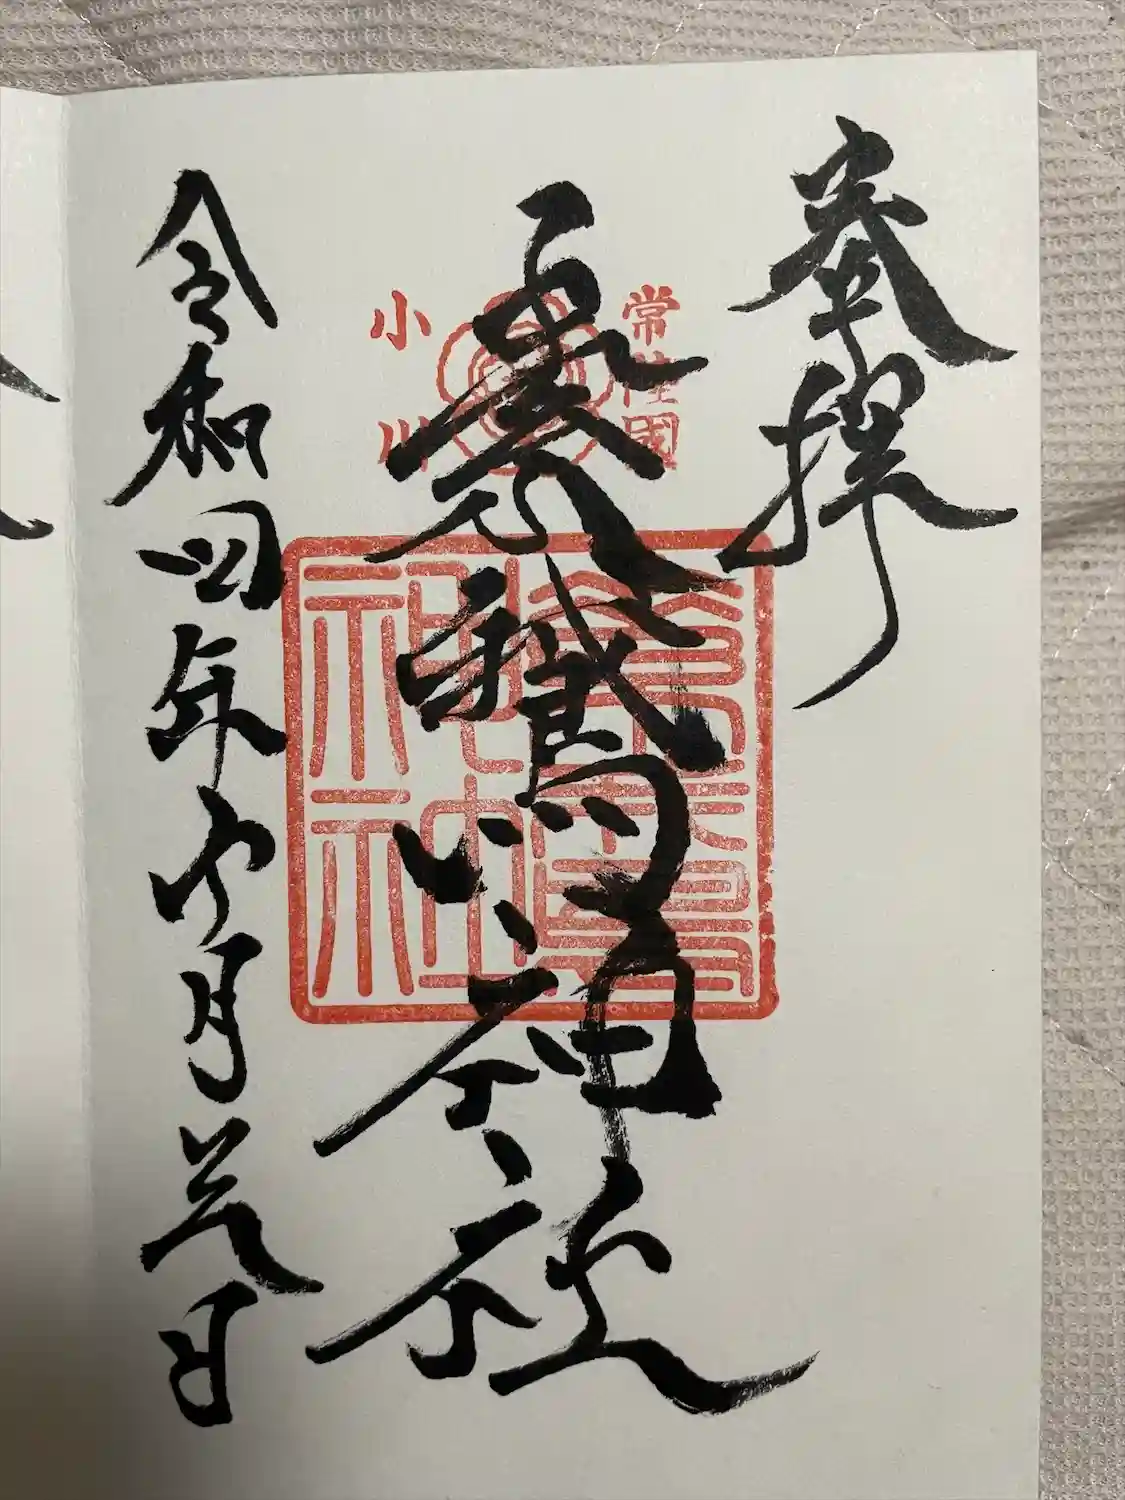 奉拝
常陸國
小川
素鵞神社
素鵞神社
令和四年
月
日